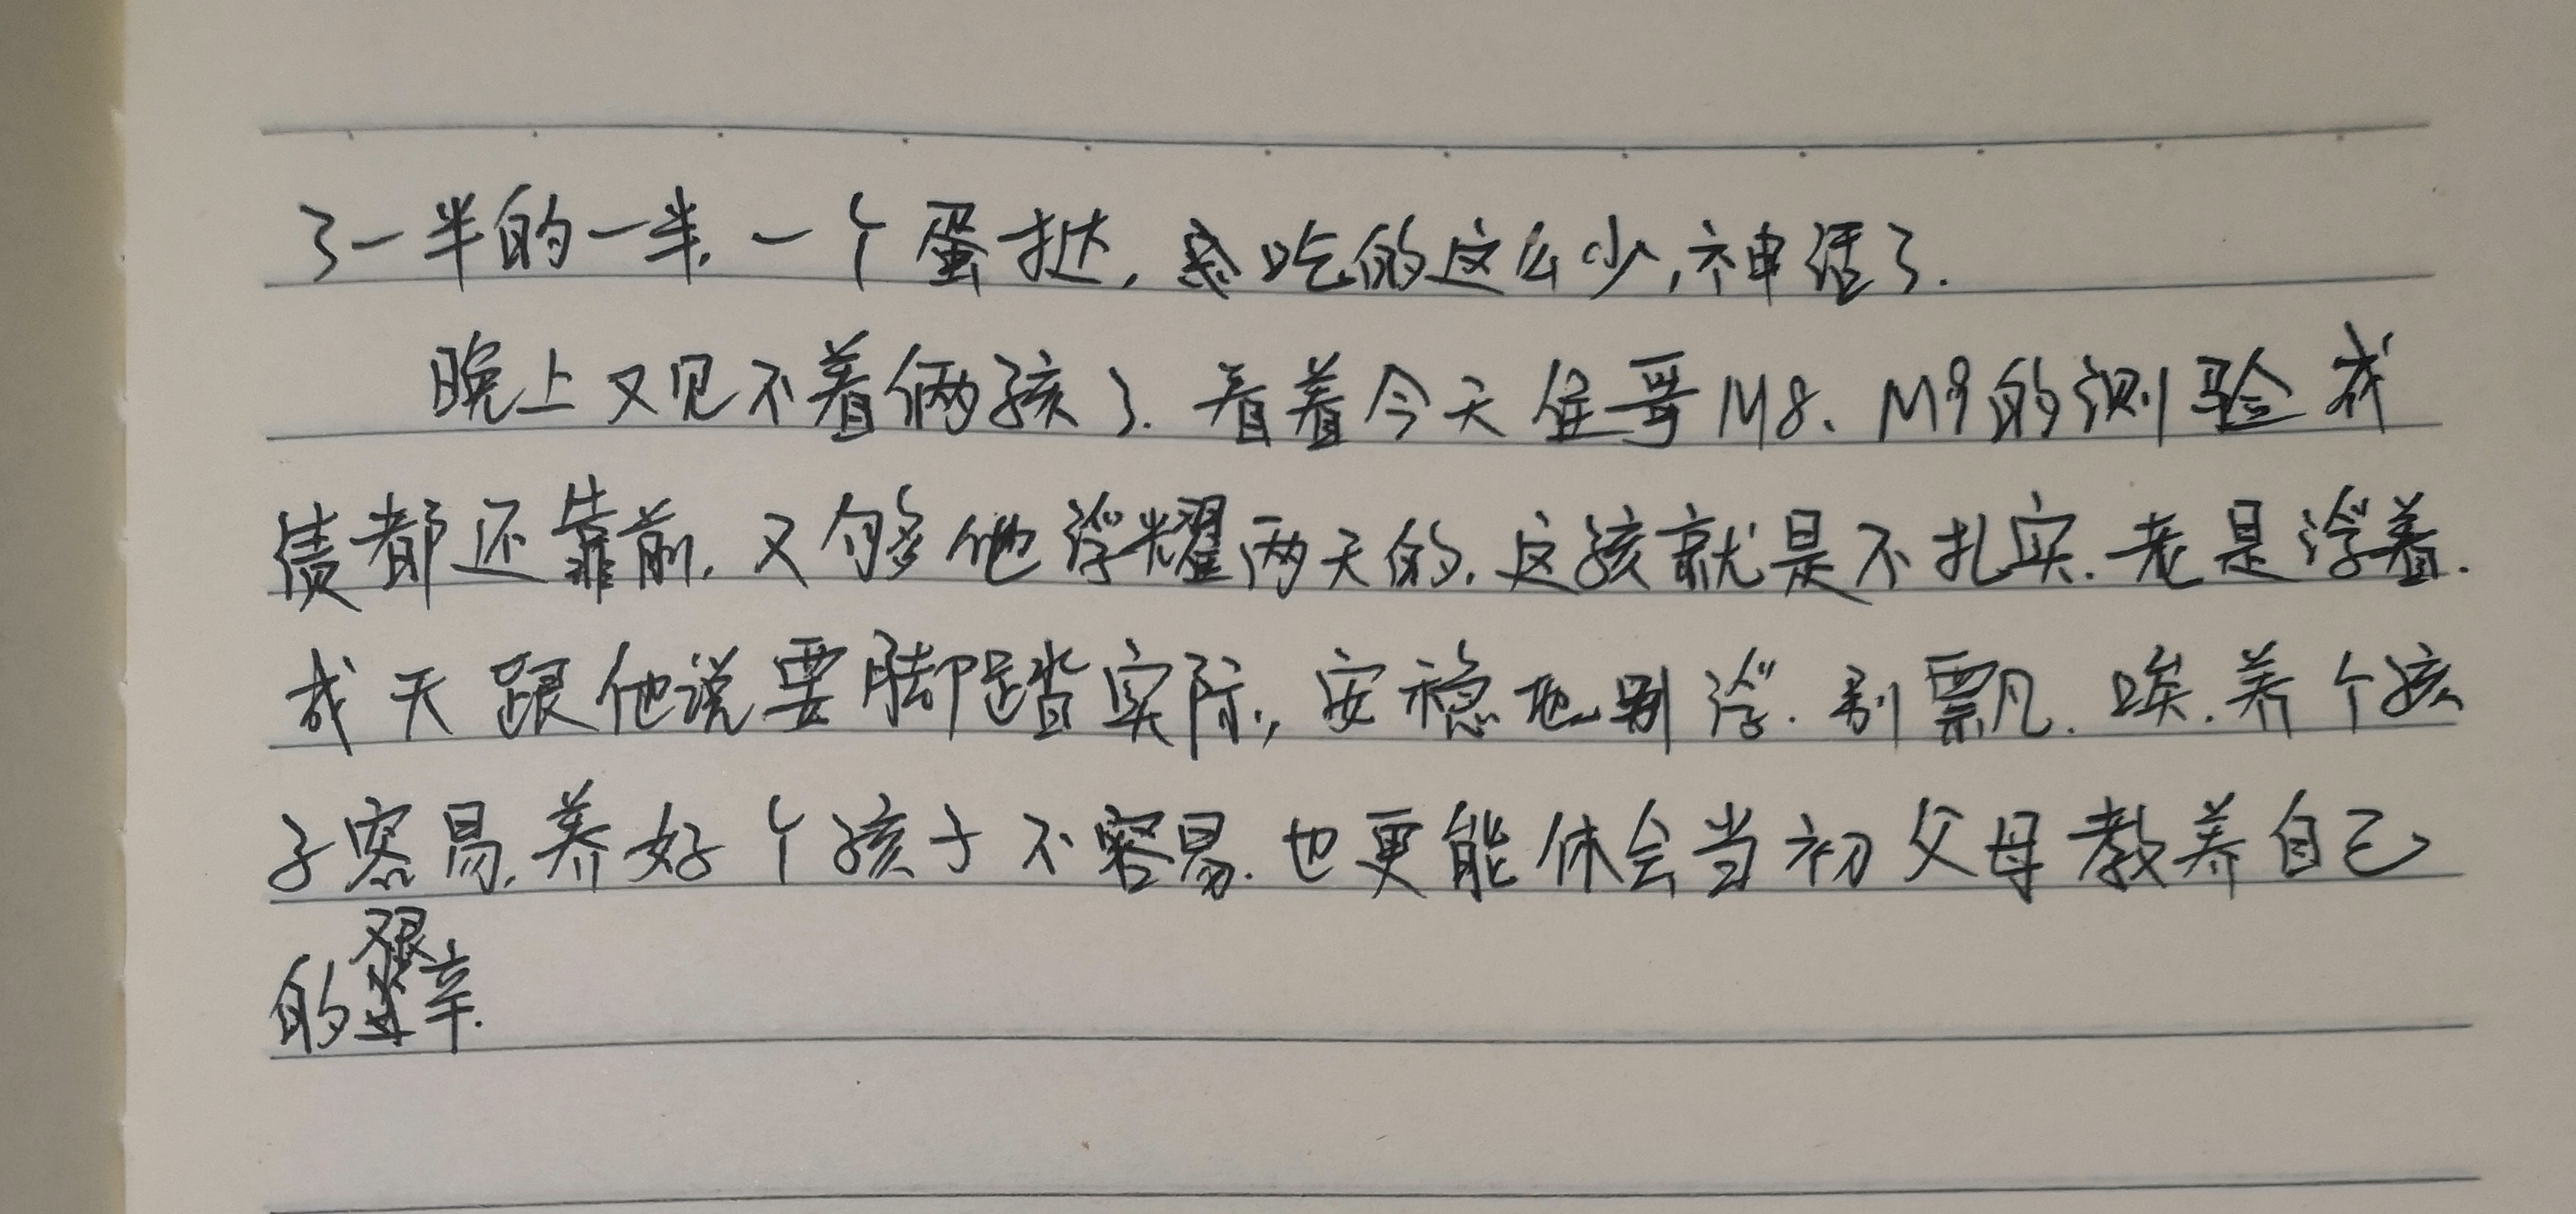 了一半的一半.一个蛋挞,怠吃的这么少,神话了.
晚上又见不着俩孩了.看着今天佳哥M8、M9的测验成
绩都还靠前.又够他浮耀两天的.这孩就是不扎实.老是浮着.
成天跟他说要脚踏实际,安稳地别浮.别飘.唉.养个孩
子容易.养好个孩子不容易.也更能体会当初父母教养自己
的艰辛.